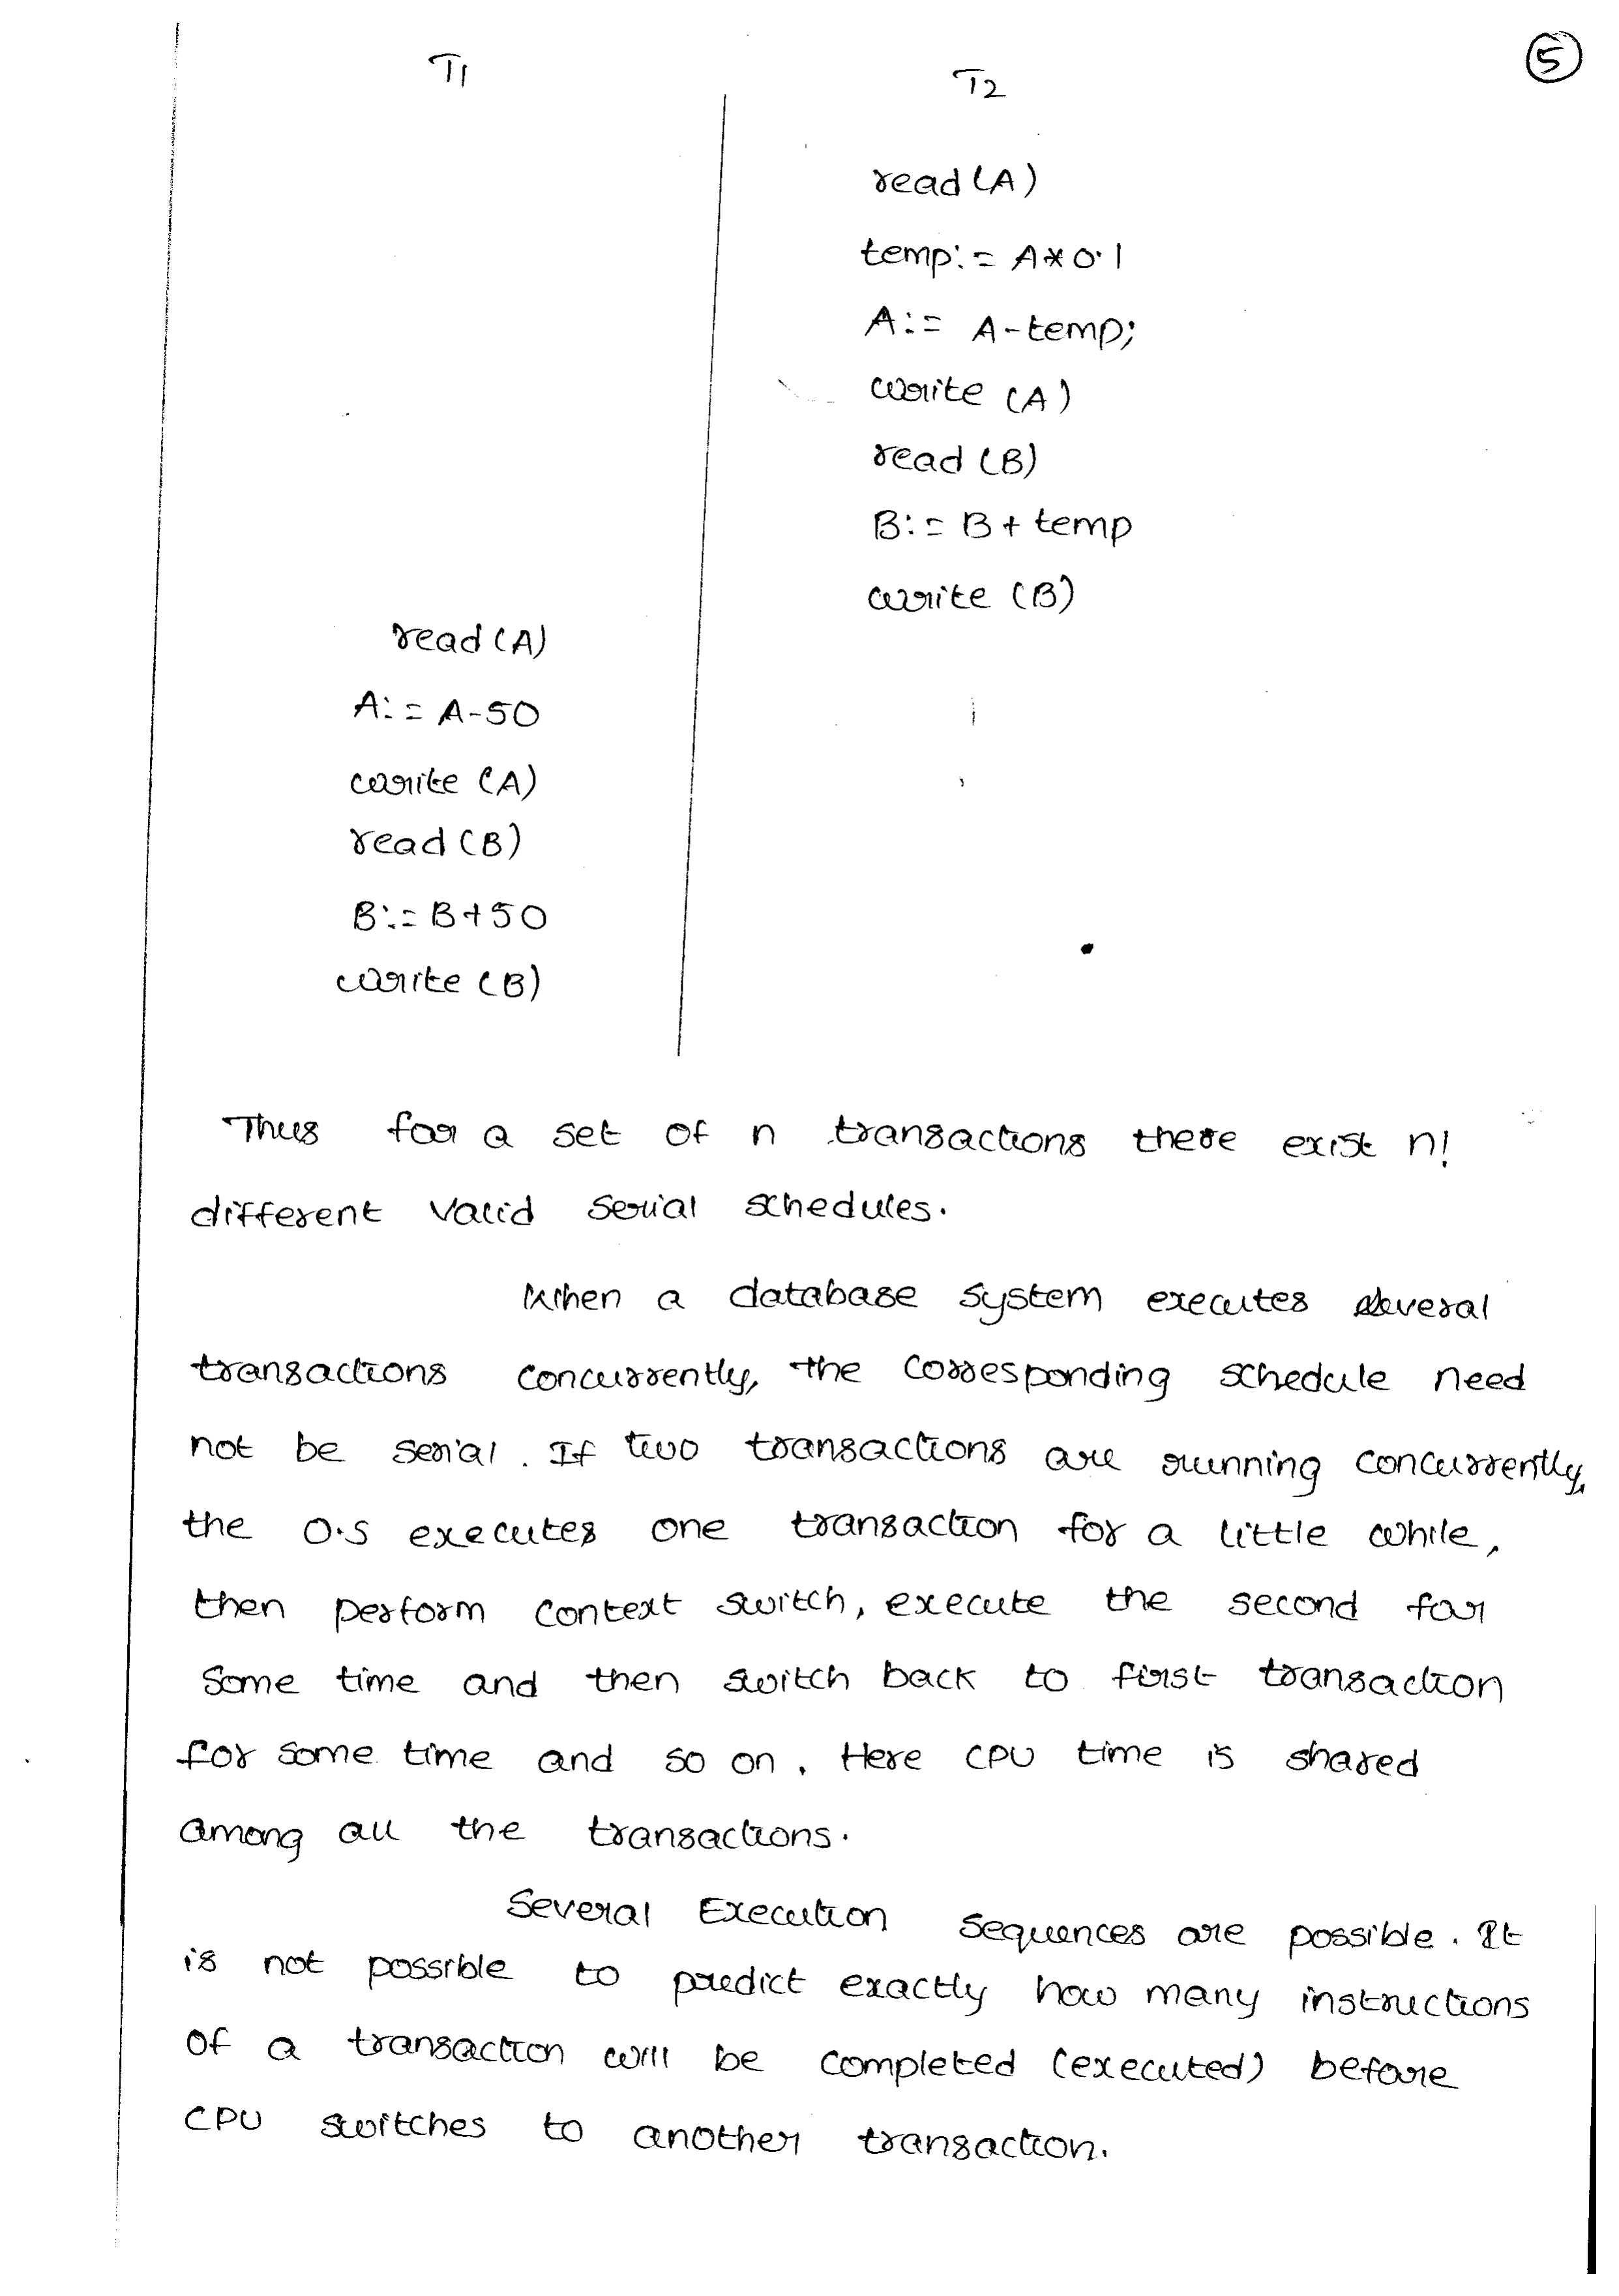 5
T1 T2
read(A)
temp:= A*0.1
A:= A-temp;
write (A)
read (B)
B:= B+temp
write (B)
read (A)
A:= A-50
write (A)
read (B)
B:= B+50
write (B)
Thus for a set of n transactions there exist n!
different valid serial schedules.
When a database system executes several
transactions concurrently, the corresponding schedule need
not be serial. If two transactions are running concurrently,
the O.S executes one transaction for a little while,
then perform context switch, execute the second for
some time and then switch back to first transaction
for some time and so on. Here CPU time is shared
among all the transactions.
Several Execution sequences are possible. It
is not possible to predict exactly how many instructions
of a transaction will be completed (executed) before
CPU switches to another transaction.